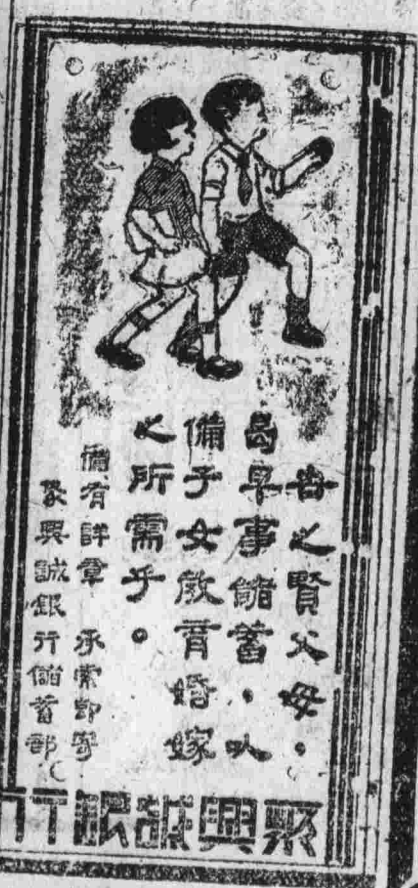 世之賢父母，
曷早事儲蓄，以
備子女教育婚嫁
之所需乎。
備有詳章 承索即寄
聚興誠銀行儲蓄部
聚興誠銀行